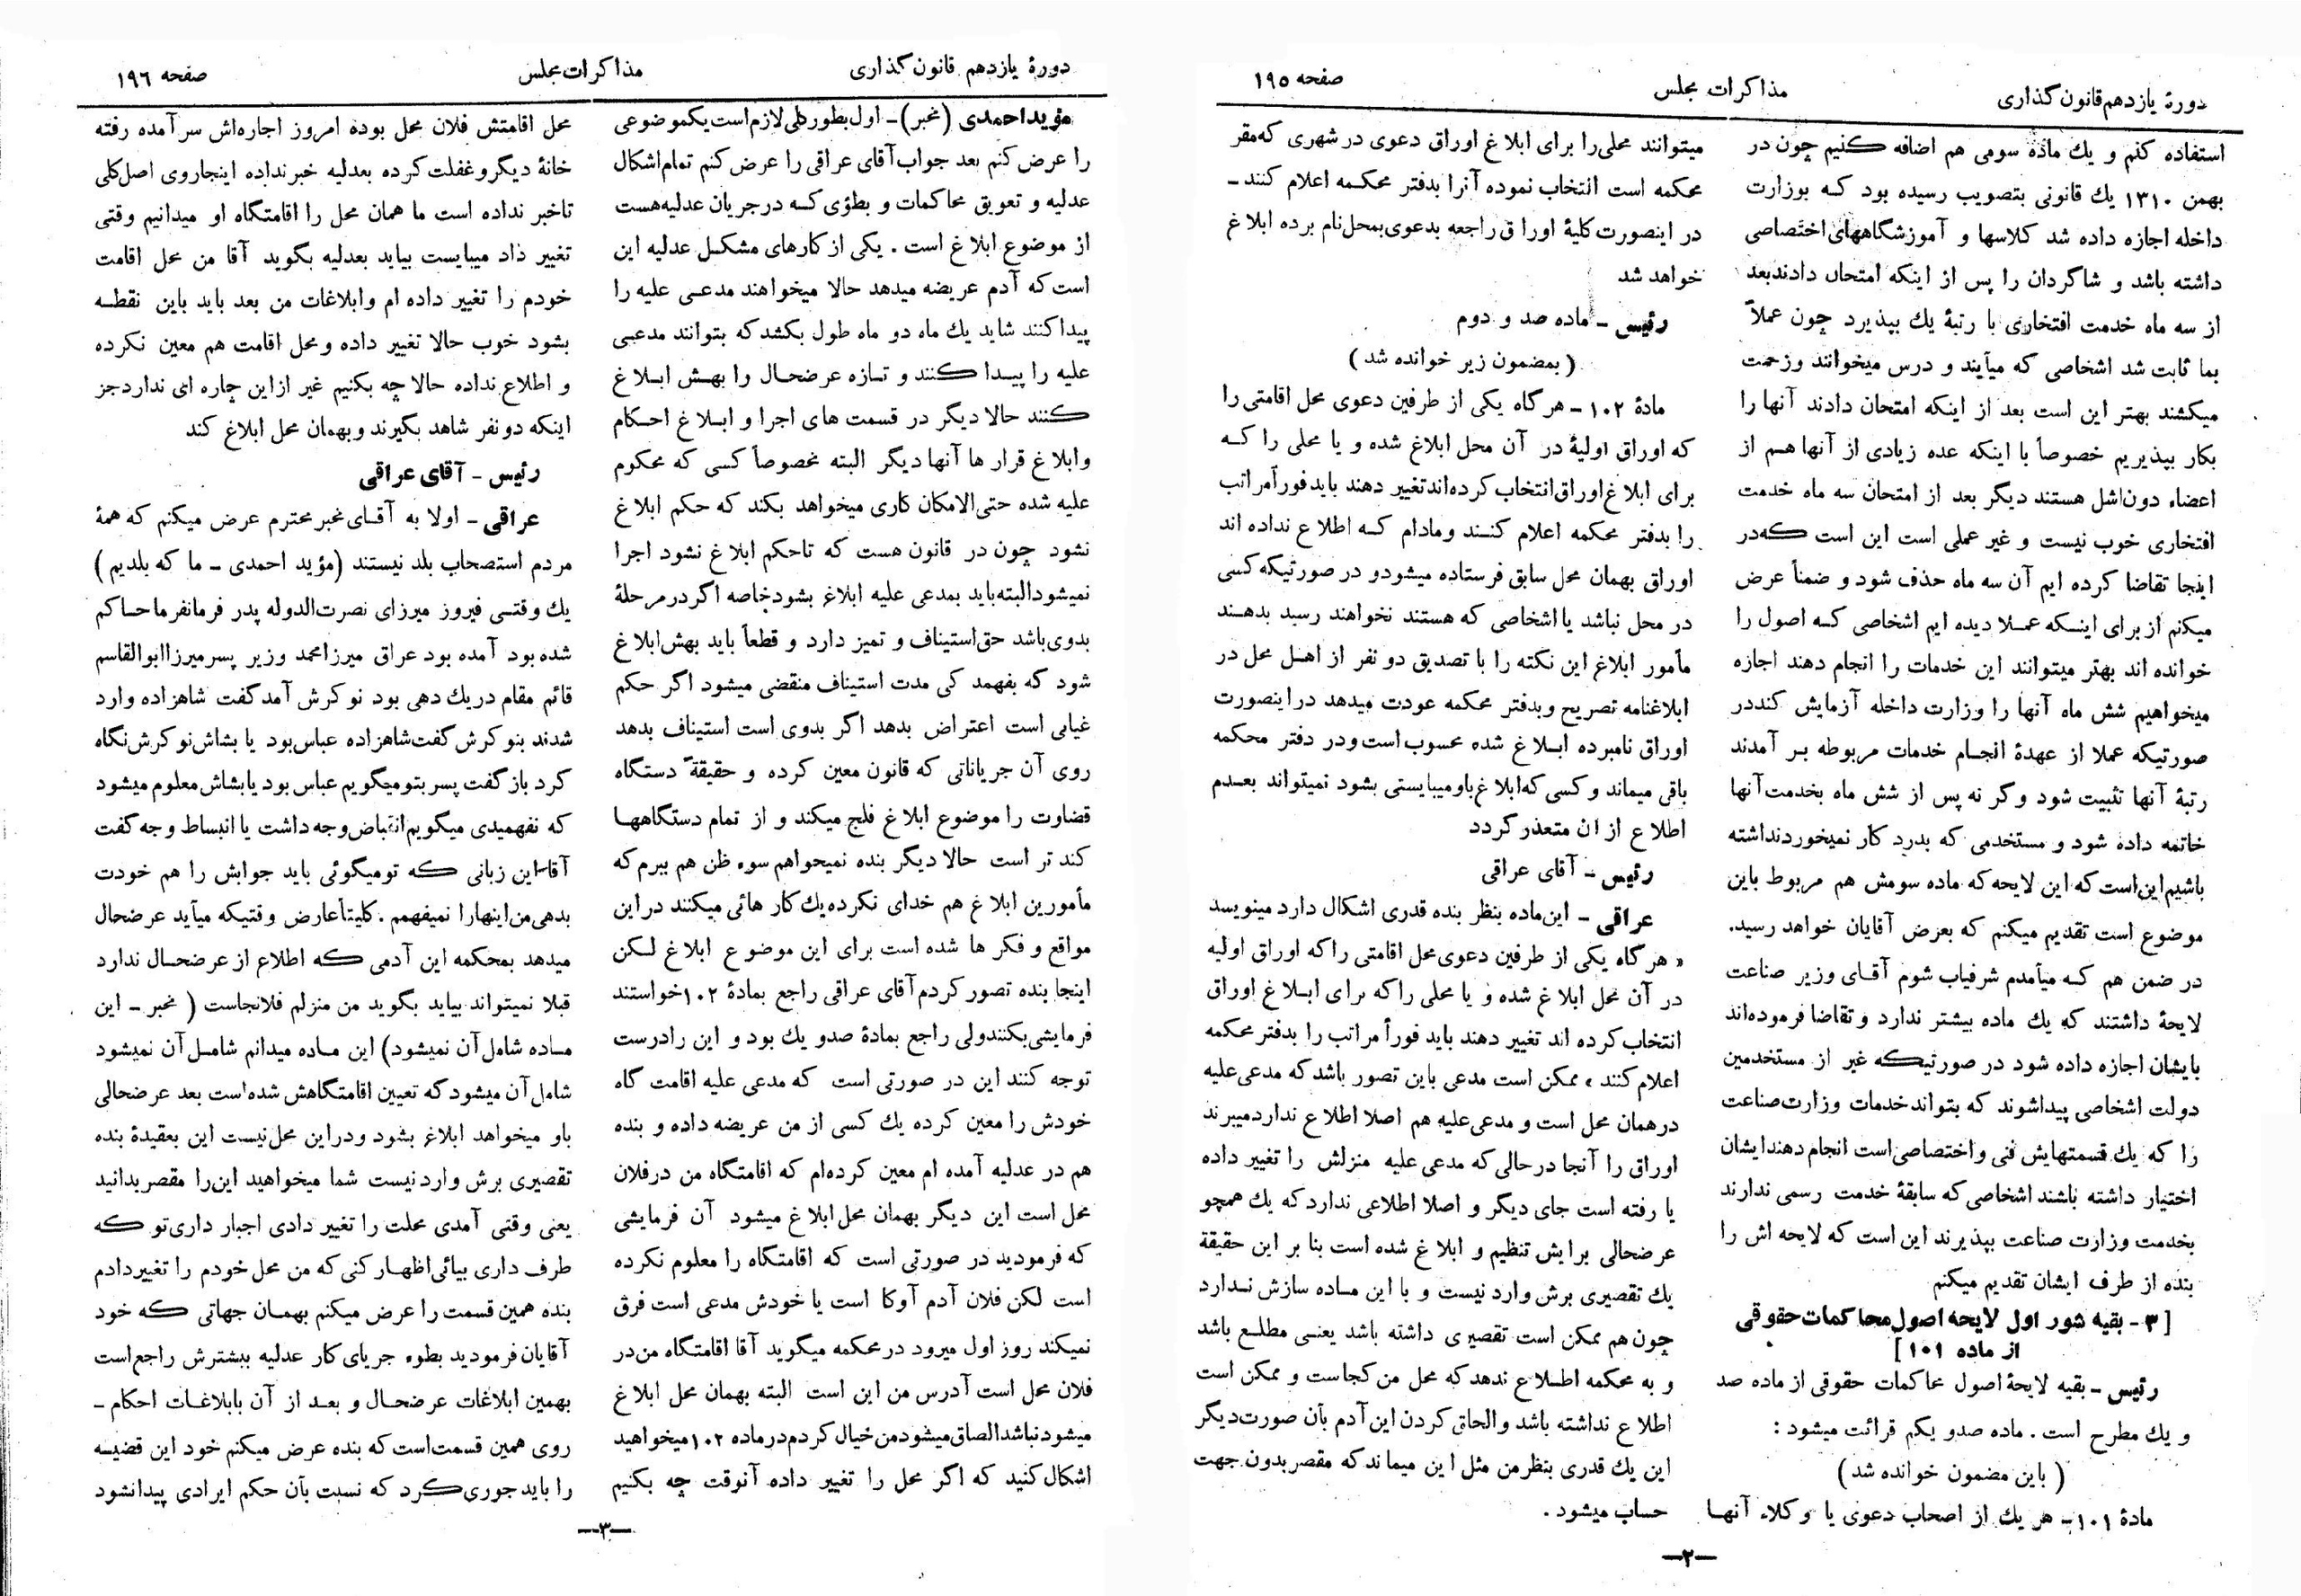 دورهٔ یازدهم قانون‌گذاری
مذاکرات مجلس
صفحه ۱۹۵
استفاده کنم و یك مادهٔ سومی هم اضافه كنیم چون در
بهمن ۱۳۱۰ یك قانونی بتصویب رسیده بود كه بوزارت
داخله اجازه داده شد كلاسها و آموزشگاههای اختصاصی
داشته باشد و شاگردان را پس از اینكه امتحان دادند بعد
از سه ماه خدمت افتخاری با رتبهٔ یك بپذیرد چون عملاً
بما ثابت شد اشخاصی كه میآیند و درس میخوانند وزحمت
میكشند بهتر این است بعد از اینكه امتحان دادند آنها را
بكار بپذیریم خصوصاً با اینكه عده زیادی از آنها هم از
اعضاء دون‌اشل هستند دیگر بعد از امتحان سه ماه خدمت
افتخاری خوب نیست و غیر عملی است این است كه‌در
اینجا تقاضا كرده ایم آن سه ماه حذف شود و ضمناً عرض
میكنم از برای اینكه عملا دیده ایم اشخاصی كه اصول را
خوانده اند بهتر میتوانند این خدمات را انجام دهند اجازه
میخواهیم شش ماه آنها را وزارت داخله آزمایش كنددر
صورتیكه عملا از عهدهٔ انجام خدمات مربوطه بر آمدند
رتبهٔ آنها تثبیت شود وگر نه پس از شش ماه بخدمت آنها
خاتمه داده شود و مستخدمی كه بدرد كار نمیخوردنداشته
باشیم‌این‌است‌كه این لایحه‌كه ماده سومش هم مربوط باین
موضوع است تقدیم میكنم كه بعرض آقایان خواهد رسید.
در ضمن هم كه میآمدم شرفیاب شوم آقای وزیر صناعت
لایحهٔ داشتند كه یك ماده بیشتر ندارد و تقاضا فرموده‌اند
بایشان اجازه داده شود در صورتیكه غیر از مستخدمین
دولت اشخاصی پیداشوند كه بتواند خدمات وزارت‌صناعت
را كه یك قسمتهایش فنی و اختصاصی‌است انجام دهندایشان
اختیار داشته باشند اشخاصی‌كه سابقهٔ خدمت رسمی ندارند
بخدمت وزارت صناعت بپذیرند این است كه لایحه اش را
بنده از طرف ایشان تقدیم میكنم
[ ۳ - بقیه شور اول لایحه اصول محاكمات حقوقی
از ماده ۱۰۱ ]
رئیس - بقیه لایحهٔ اصول محاكمات حقوقی از ماده صد
و یك مطرح است . ماده صدو یكم قرائت میشود :
( باین مضمون خوانده شد )
مادهٔ ۱۰۱ - هر یك از اصحاب دعوی یا وكلاء آنها
میتوانند محلی‌را برای ابلاغ اوراق دعوی در شهری كه‌مقر
محكمه است انتخاب نموده آنرا بدفتر محكمه اعلام كنند -
در اینصورت كلیهٔ اوراق راجعه بدعوی‌بمحل‌نام برده ابلاغ
خواهد شد
رئیس - ماده صد و دوم
( بمضمون زیر خوانده شد )
مادهٔ ۱۰۲ - هر گاه یكی از طرفین دعوی محل اقامتی را
كه اوراق اولیهٔ در آن محل ابلاغ شده و یا محلی را كه
برای ابلاغ‌اوراق‌انتخاب كرده‌اندتغییر دهند باید فوراًمراتب
را بدفتر محكمه اعلام كنند ومادام كه اطلاع نداده اند
اوراق بهمان محل سابق فرستاده میشودو در صورتیكه كسی
در محل نباشد یا اشخاصی كه هستند نخواهند رسید بدهند
مأمور ابلاغ این نكته را با تصدیق دو نفر از اهل محل در
ابلاغنامه تصریح وبدفتر محكمه عودت میدهد در اینصورت
اوراق نامبرده ابلاغ شده محسوب است‌ودر دفتر محكمه
باقی میماند و كسی كه‌ابلاغ‌باومیبایستی بشود نمیتواند بعدم
اطلاع از ان متعذر گردد
رئیس - آقای عراقی
عراقی - این‌ماده بنظر بنده قدری اشكال دارد مینویسد
« هر گاه یكی از طرفین دعوی‌محل اقامتی راكه اوراق اولیه
در آن محل ابلاغ شده و یا محلی راكه برای ابلاغ اوراق
انتخاب كرده اند تغییر دهند باید فوراً مراتب را بدفتر محكمه
اعلام كنند » ممكن است مدعی باین تصور باشد كه مدعی‌علیه
درهمان محل است و مدعی‌علیه هم اصلا اطلاع نداردمیبرند
اوراق را آنجا درحالی‌كه مدعی علیه منزلش را تغییر داده
یا رفته است جای دیگر و اصلا اطلاعی نداردكه یك همچو
عرضحالی برایش تنظیم و ابلاغ شده است بنا بر این حقیقة
یك تقصیری برش وارد نیست و با این ماده سازش ندارد
چون هم ممكن است تقصیری داشته باشد یعنی مطلع باشد
و به محكمه اطلاع ندهد كه محل من كجاست و ممكن است
اطلاع نداشته باشد والحاق كردن این‌آدم بآن صورت‌دیگر
این یك قدری بنظر من مثل این میماند كه مقصر بدون جهت
حساب میشود .
—۲—
دورهٔ یازدهم قانون‌گذاری
مذاكرات مجلس
صفحه ۱۹۶
مؤیداحمدی (مخبر) - اول بطور كلی لازم است یكموضوعی
را عرض كنم بعد جواب آقای عراقی را عرض كنم تمام‌اشكال
عدلیه و تعویق محاكمات و بطؤی كه درجریان عدلیه‌هست
از موضوع ابلاغ است . یكی از كارهای مشكل عدلیه این
است كه آدم عریضه میدهد حالا میخواهند مدعی علیه را
پیدا كنند شاید یك ماه دو ماه طول بكشد كه بتوانند مدعی
علیه را پیدا كنند و تازه عرضحال را بهش ابلاغ
كنند حالا دیگر در قسمت های اجرا و ابلاغ احكام
وابلاغ قرار ها آنها دیگر البته مخصوصاً كسی كه محكوم
علیه شده حتی‌الامكان كاری میخواهد بكند كه حكم ابلاغ
نشود چون در قانون هست كه تاحكم ابلاغ نشود اجرا
نمیشودالبته‌باید بمدعی علیه ابلاغ بشودخاصه اگر درمرحلهٔ
بدوی‌باشد حق‌استیناف و تمیز دارد و قطعاً باید بهش‌ابلاغ
شود كه بفهمد كی مدت استیناف منقضی میشود اگر حكم
غیابی است اعتراض بدهد اگر بدوی است استیناف بدهد
روی آن جریاناتی كه قانون معین كرده و حقیقةً دستگاه
قضاوت را موضوع ابلاغ فلج میكند و از تمام دستگاهها
كند تر است حالا دیگر بنده نمیخواهم سوء ظن هم ببرم كه
مأمورین ابلاغ هم خدای نكرده‌یك كار هائی میكنند در این
مواقع و فكر ها شده است برای این موضوع ابلاغ لكن
اینجا بنده تصور كردم آقای عراقی راجع بمادهٔ ۱۰۲ خواستند
فرمایشی‌بكنندولی راجع بمادهٔ صدو یك بود و این رادرست
توجه كنند این در صورتی است كه مدعی علیه اقامت گاه
خودش را معین كرده یك كسی از من عریضه داده و بنده
هم در عدلیه آمده ام معین كرده‌ام كه اقامتگاه من درفلان
محل است این دیگر بهمان محل ابلاغ میشود آن فرمایشی
كه فرمودید در صورتی است كه اقامتگاه را معلوم نكرده
است لكن فلان آدم آوكا است یا خودش مدعی است فرق
نمیكند روز اول میرود در محكمه میگوید آقا اقامتگاه من‌در
فلان محل است آدرس من این است البته بهمان محل ابلاغ
میشودنباشدالصاق‌میشودمن‌خیال كردم‌درماده ۱۰۲ میخواهید
اشكال كنید كه اگر محل را تغییر داده آنوقت چه بكنیم
محل اقامتش فلان محل بوده امروز اجاره‌اش سرآمده رفته
خانهٔ دیگر وغفلت كرده بعدلیه خبرنداده اینجاروی اصل‌كلی
تاخبر نداده است ما همان محل را اقامتگاه او میدانیم وقتی
تغییر داد میبایست بیاید بعدلیه بگوید آقا من محل اقامت
خودم را تغییر داده ام وابلاغات من بعد باید باین نقطه
بشود خوب حالا تغییر داده و محل اقامت هم معین نكرده
و اطلاع نداده حالا چه بكنیم غیر از این چاره ای ندارد جز
اینكه دو نفر شاهد بگیرند و بهمان محل ابلاغ كند
رئیس - آقای عراقی
عراقی - اولا به آقای مخبر محترم عرض میكنم كه همهٔ
مردم استصحاب بلد نیستند (مؤید احمدی - ما كه بلدیم )
یك وقتی فیروز میرزای نصرت‌الدوله پدر فرمانفرما حاكم
شده بود آمده بود عراق میرزامحمد وزیر پسر میرزاابوالقاسم
قائم مقام در یك دهی بود نوكرش آمد گفت شاهزاده وارد
شدند بنوكرش گفت شاهزاده عباس‌بود یا بشاش‌نوكرش‌نگاه
كرد بازگفت پسر بتو میگویم عباس بود یا بشاش معلوم میشود
كه نفهمیدی میگویم‌انقباض‌وجه داشت یا انبساط وجه گفت
آقا این زبانی كه تومیگوئی باید جوابش را هم خودت
بدهی‌من‌اینهارا نمیفهمم . كلیتاًعارض وقتیكه میآید عرضحال
میدهد بمحكمه این آدمی كه اطلاع از عرضحال ندارد
قبلا نمیتواند بیاید بگوید من منزلم فلانجاست ( مخبر - این
ماده شامل آن نمیشود) این ماده میدانم شامل آن نمیشود
شامل آن میشود كه تعیین اقامتگاهش شده است بعد عرضحالی
باو میخواهد ابلاغ بشود ودر این محل‌نیست این بعقیدهٔ بنده
تقصیری برش وارد نیست شما میخواهید این‌را مقصر بدانید
یعنی وقتی آمدی محلت را تغییر دادی اجبار داری‌تو كه
طرف داری بیائی‌اظهار كنی كه من محل خودم را تغییردادم
بنده همین قسمت را عرض میكنم بهمان جهاتی كه خود
آقایان فرمودید بطوء جریای كار عدلیه بیشترش راجع‌است
بهمین ابلاغات عرضحال و بعد از آن بابلاغات احكام -
روی همین قسمت‌است كه بنده عرض میكنم خود این قضیه
را باید جوری كرد كه نسبت بآن حكم ایرادی پیدانشود
—۳—